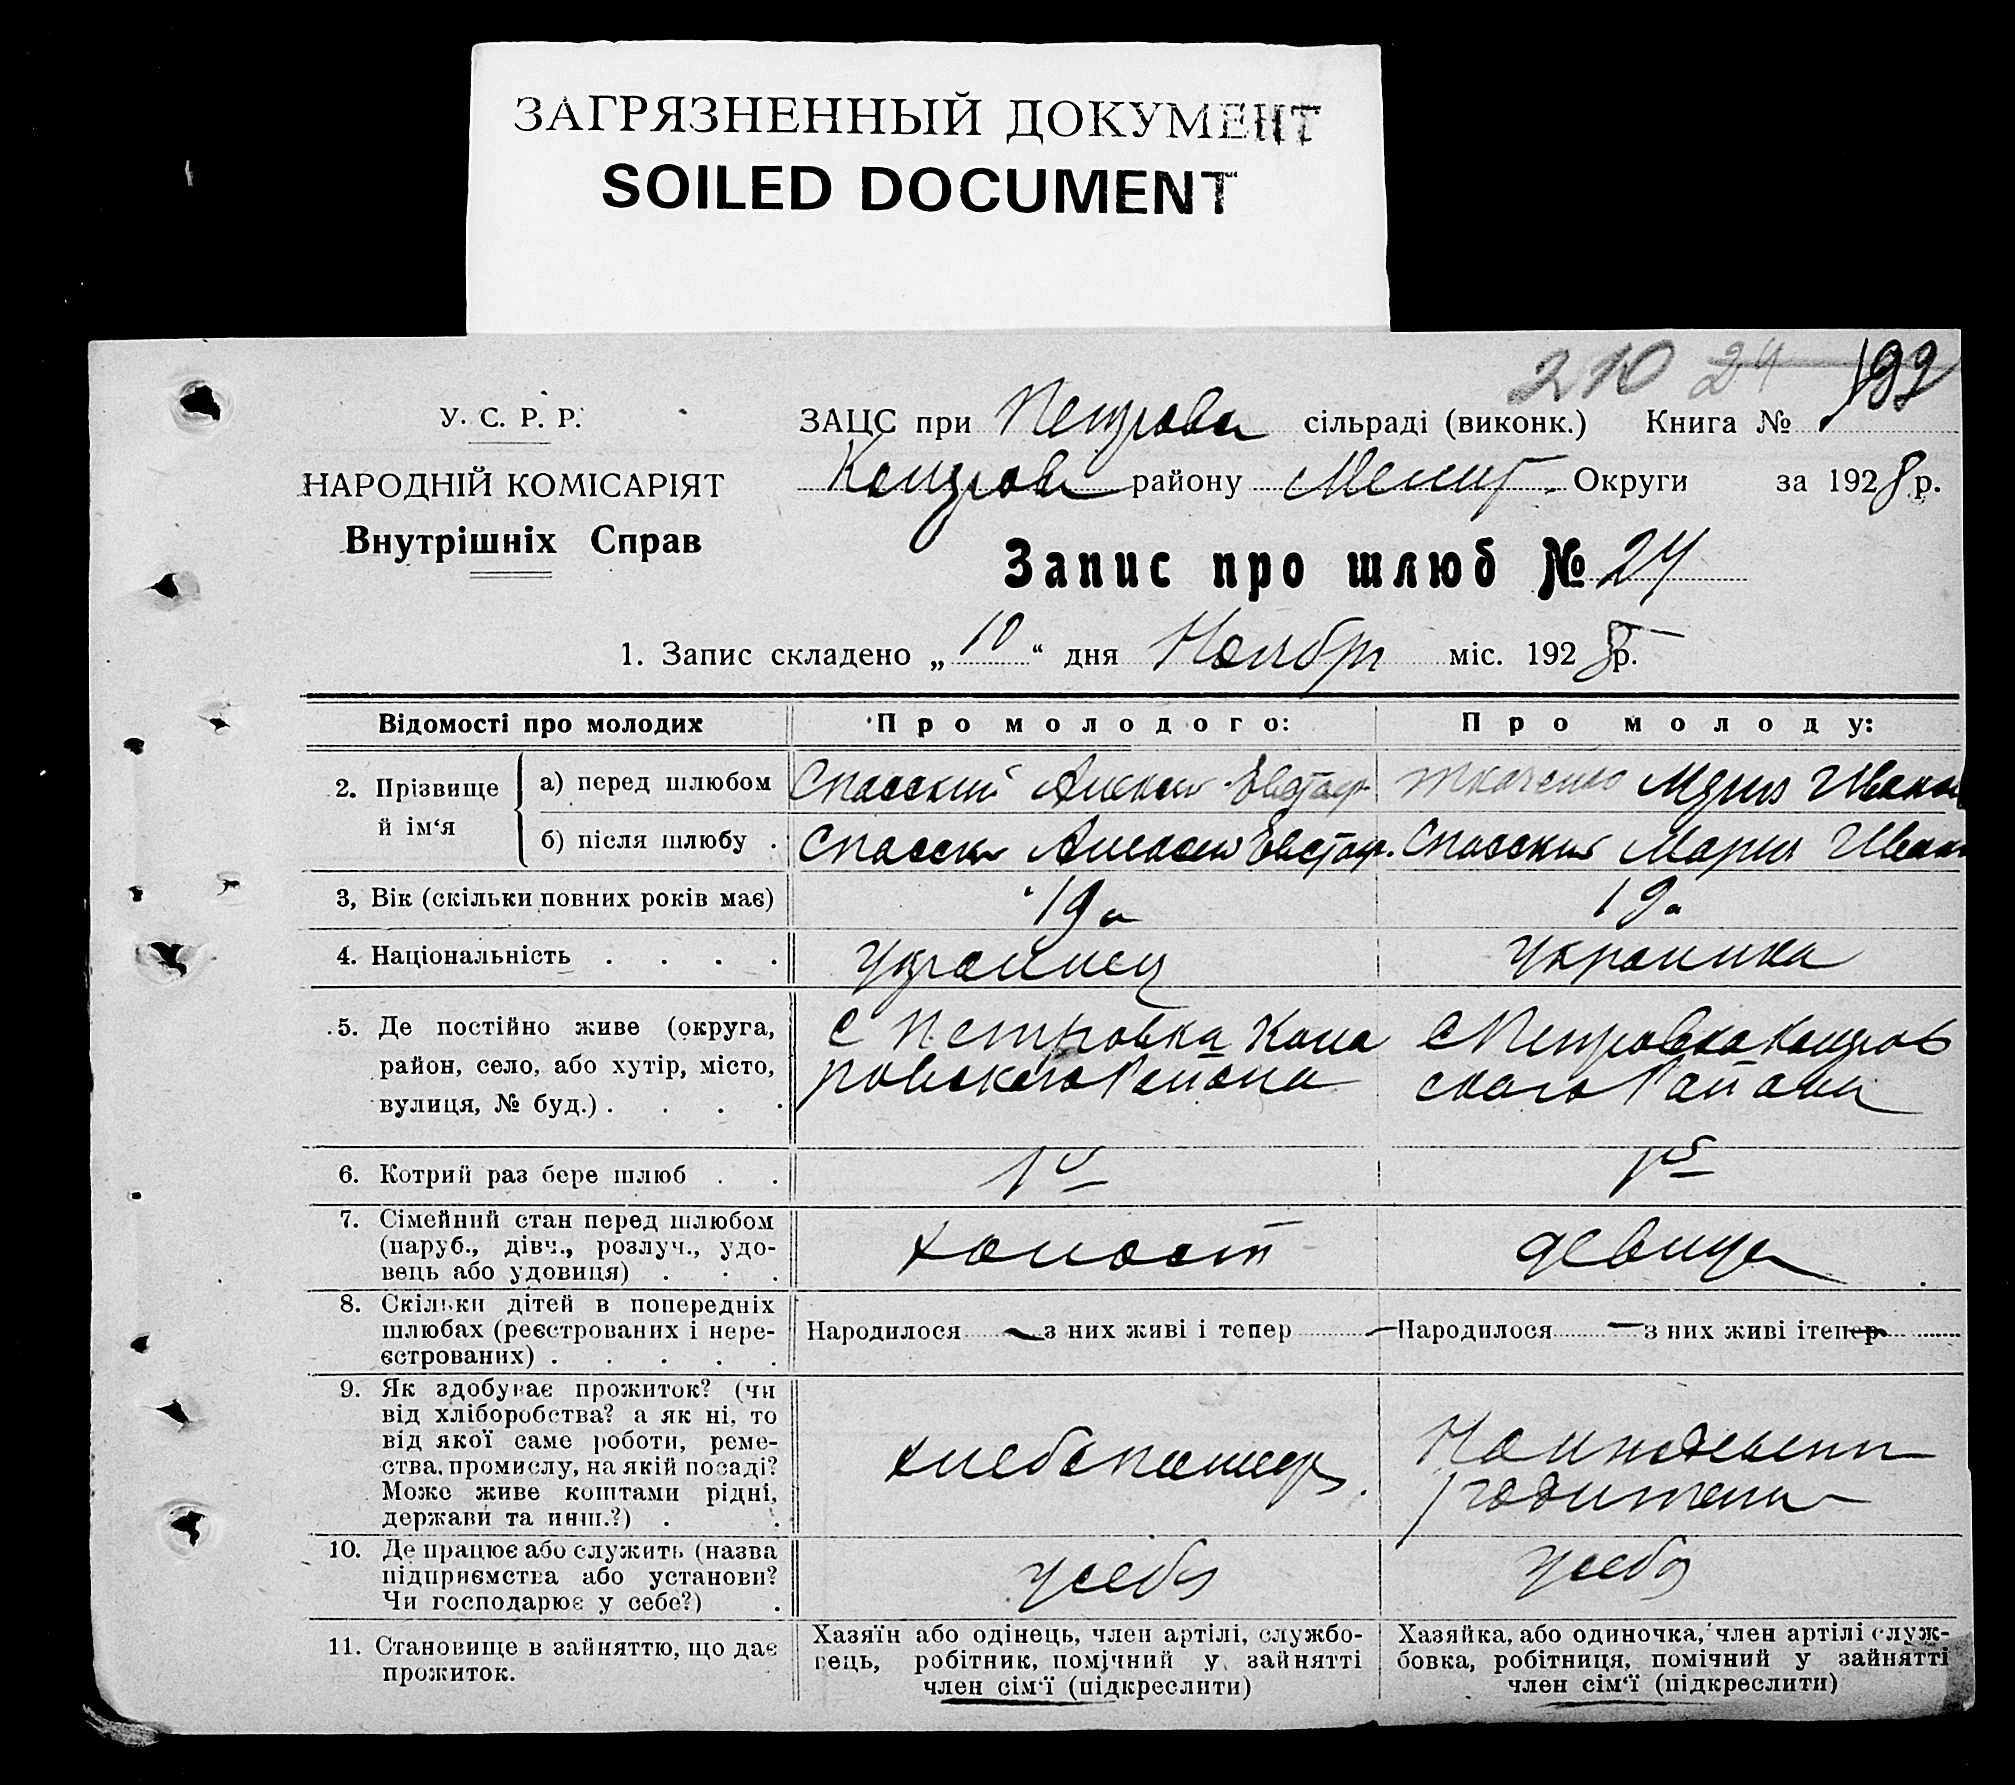 ЗАГРЯЗНЕННЫЙ ДОКУМЕНТ
SOILED DOCUMENT
210 24 192
У. С. Р. Р.
НАРОДНІЙ КОМІСАРІЯТ
Внутрішніх Справ
ЗАЦС при Петрова сільраді (виконк.) Книга №
району Мелит. Округи за 1928 р.
Запис про шлюб № 24
1. Запис складено „10“ дня Ноябр міс. 1928 р.
Відомості про молодих Про молодого: Про молоду:
2. Прізвище й ім‘я
а) перед шлюбом Спасский Алексей Евстаф. Ткаченко Мария Иванов
б) після шлюбу . Спасски Алексей Евстаф. Спасская Мария Иван
3, Вік (скільки повних років має) 19 19
4. Національність . . . . Украинец Украинка
5. Де постійно живе (округа, район, село, або хутір, місто, вулиця, № буд.) . . . .
с Петровка
ровского Района
с Петровка
ского Района
6. Котрий раз бере шлюб . . 1й 1й
7. Сімейний стан перед шлюбом (паруб., дівч., розлуч., удовець або удовиця) . . . холост девица
8. Скільки дітей в попередніх шлюбах (реєстрованих і нереєстрованих) . . . . .
Народилося — з них живі і тепер — Народилося — з них живі і тепер —
9. Як здобуває прожиток? (чи від хліборобства? а як ні, то від якої саме роботи, ремества, промислу, на якій посаді? Може живе коштами рідні, держави та инш.?) . .
хлебопашец
На иждевении
родители
10. Де працює або служить (назва підприємства або установи? Чи господарює у себе?) . у себя у себя
11. Становище в зайняттю, що дає прожиток.
Хазяїн або одінець, член артілі, службовець, робітник, помічний у зайнятті член сім‘ї (підкреслити)
Хазяйка, або одиночка, член артілі службовка, робітниця, помічний у зайнятті член сім‘ї (підкреслити)